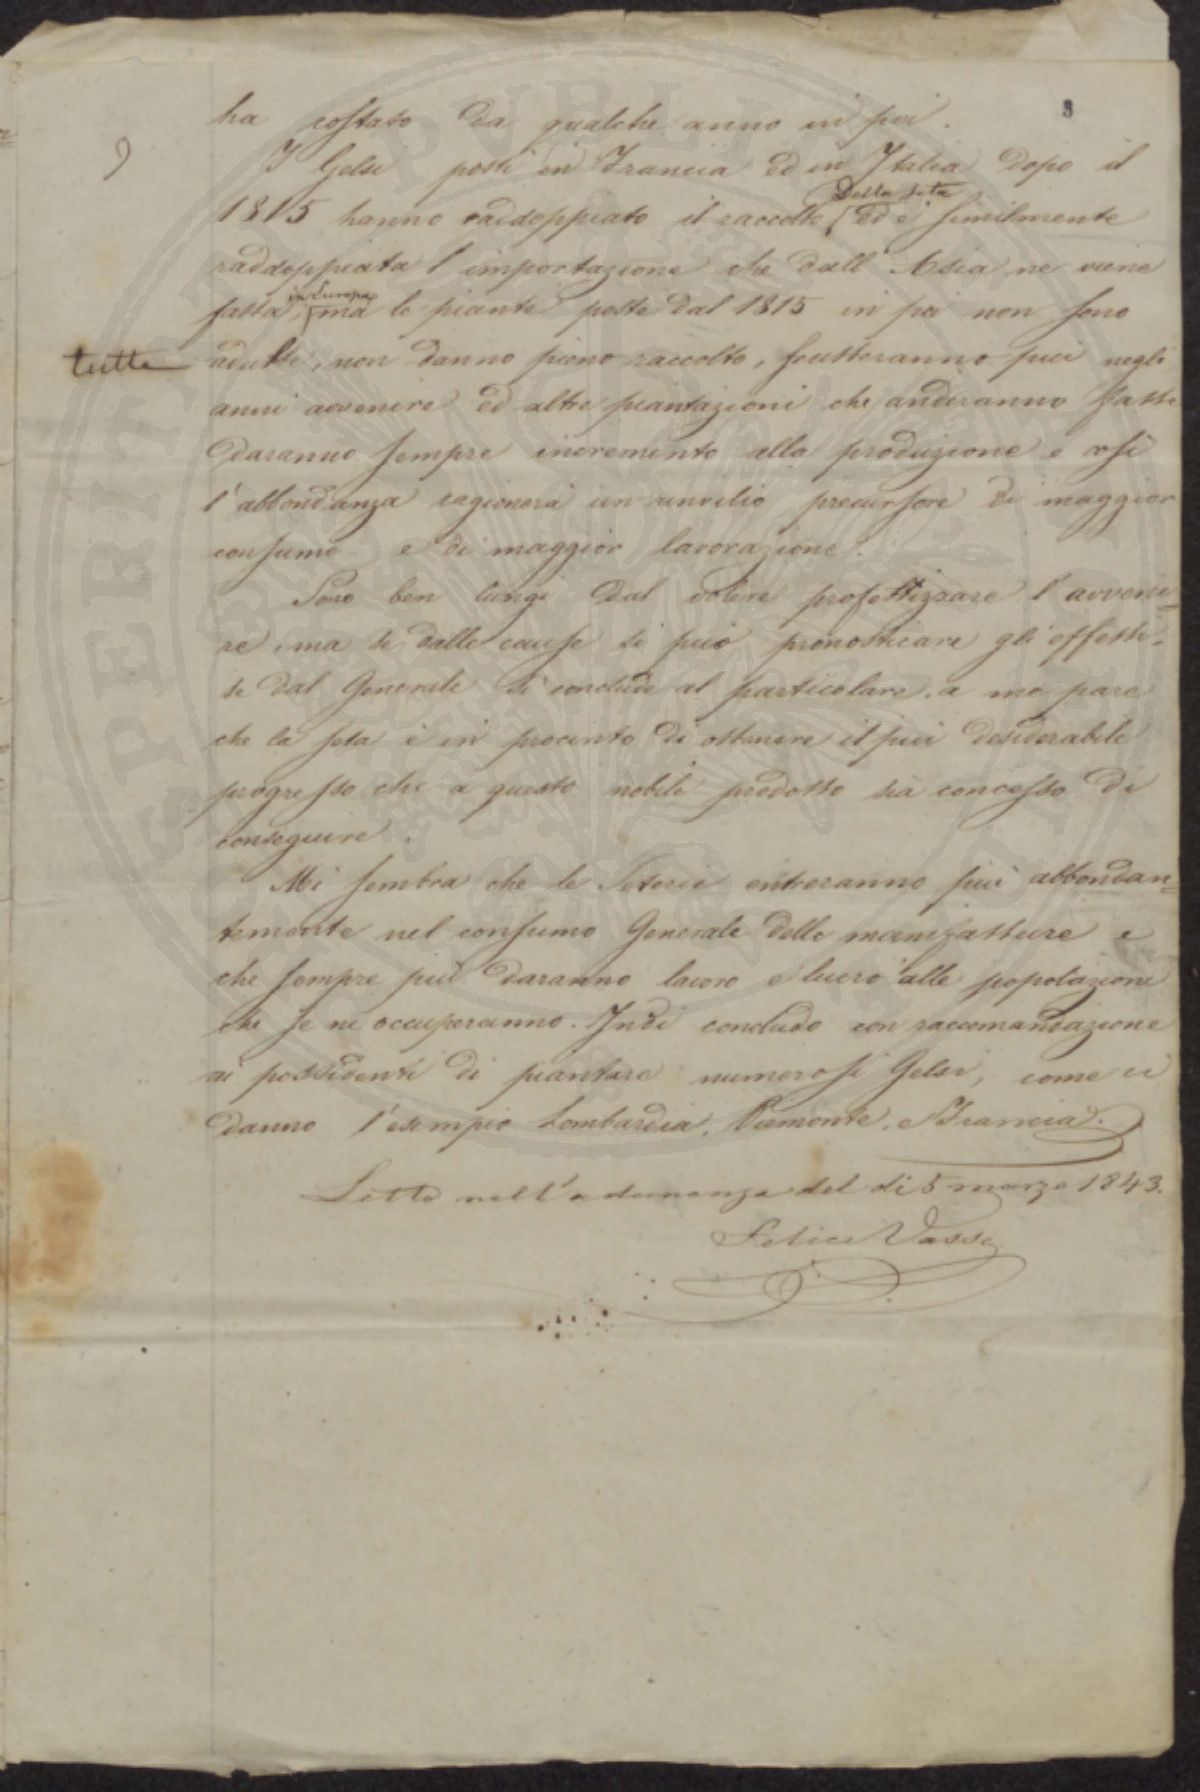 3
9
ha costato da qualche anno in poi.
I Gelsi posti in Francia ed in Italia dopo il
della seta
1815 hanno raddoppiato il raccolto ed è similmente
raddoppiata l'importazione che dall'Asia ne viene
in Europa
fatta, ma le piante poste dal 1815 in poi non sono
tutte
adulte, non danno pieno raccolto, frutteranno più negli
anni avvenire ed altre piantazioni che anderanno fatte
daranno sempre incremento alla produzione e così
l'abbondanza cagionerà un rinvilio precursore di maggior
consumo e di maggior lavorazione.
Sono ben lungi dal volere profettizzare l'avveni=
re, ma se dalle cause si può pronosticare gli effetti,
se dal Generale si conclude al particolare, a me pare
che la seta è in procinto di ottenere il più desiderabile
progresso che a questo nobile prodotto sia concesso di
conseguire.
Mi sembra che le Seterie entreranno più abbondan=
temente nel consumo Generale delle manifatture e
che sempre più daranno lavoro e lucro alle popolazioni
che se ne occuperanno. Indi concludo con raccomandazione
ai possidenti di piantare numerosi Gelsi, come ci
danno l'esempio Lombardia, Piemonte, e Francia.
Letto nell'adunanza del di 5 marzo 1843.
Felice Vasse